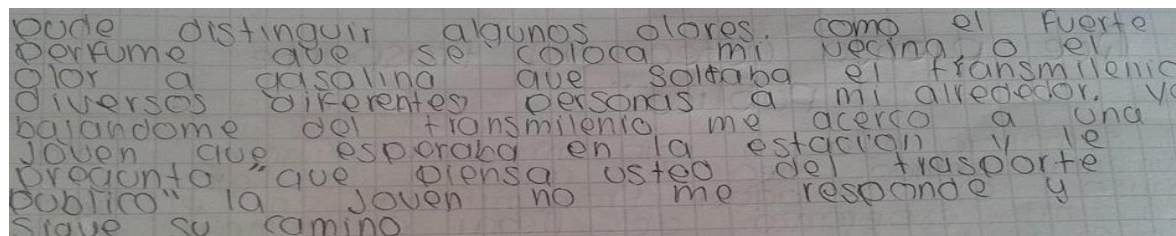 pude distinguir algunos olores. como el fuerte
perfume que se coloca mi vecina, o el
olor a gasolina que soltaba el transmilenio
diversos diferentes personas a mi alrededor. y
bajandome del transmilenio me acerco a una
joven que esperaba en la estacion y le
pregunto "que piensa usted del trasporte
publico" la joven no me responde y
sigue su camino